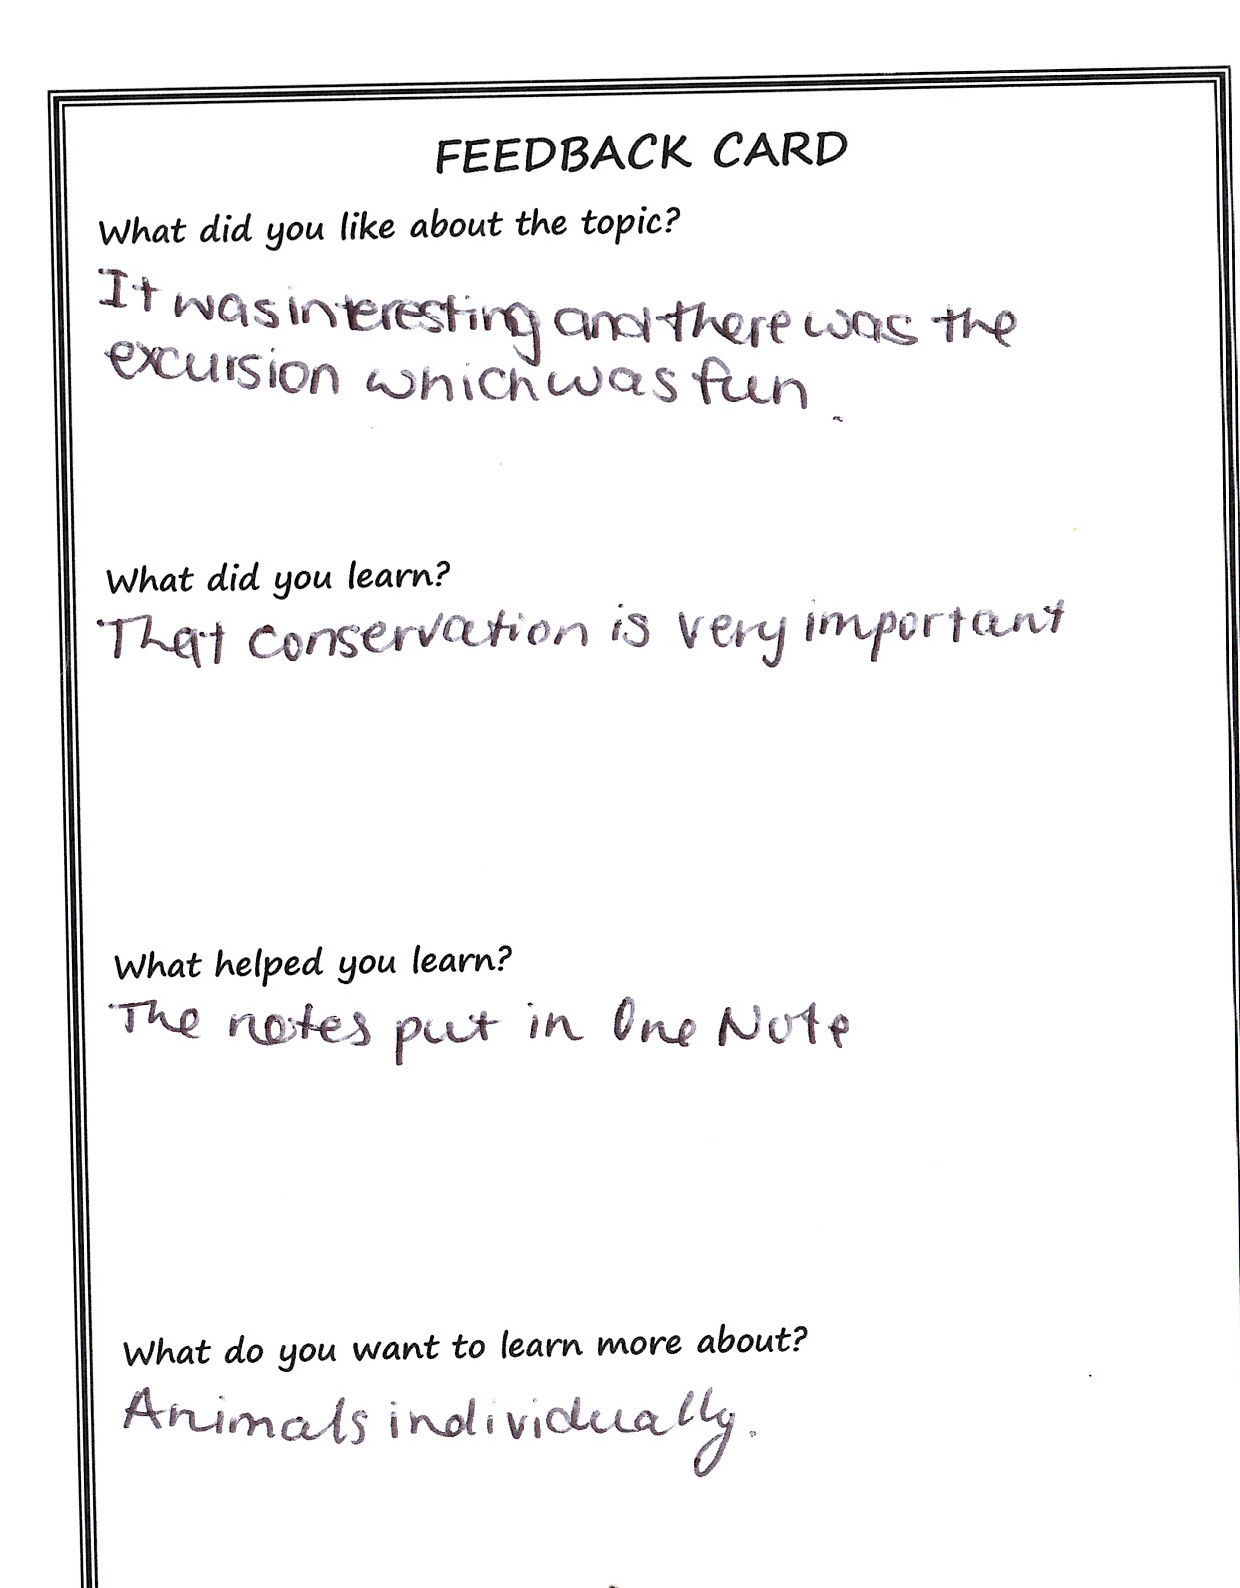 FEEDBACK CARD
What did you like about the topic?
It was interesting and there was the
excursion which was fun.
What did you learn?
That conservation is very important
What helped you learn?
The notes put in One Note
What do you want to learn more about?
Animals individually.